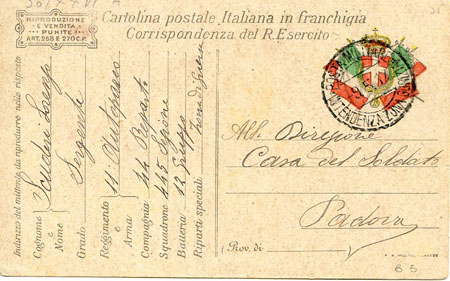 RIPRODUZIONE
E VENDITA
PUNITE
ART. 268 E 270 C.P.
Cartolina postale Italiana in franchigia
Corrispondenza del R. Esercito
INTENDENZA
Alla Direzione
Casa del Soldato
Padova
(Prov. di )
B 5
Indirizzo del mittente da riprodurre nella risposta
Cognome Scuderi Lorenzo
e
Nome
Grado Sergente
Reggimento 11 Autoparco
o
Arma
Compagnia Reparto
Squadrone 445 Sezione
Batteria 12 Gruppo
Riparti speciali Zona di Guerra